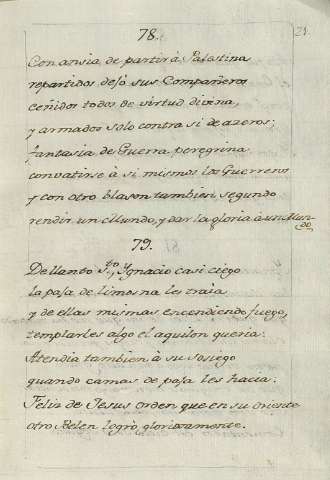 78.
21.
Con ansia de partir à Palestina
repartidos dejó sus Compañeros
ceñidos todos de virtud divina,
y armados solo contra si de azeros;
fantasia de Guerra peregrina
convatirse à si mismos los Guerreros
y con otro blason tambien segundo
rendir un Mundo, y dar la gloria à un Mun-
do.
79.
De llanto S.to Ygnacio casi ciego
la paja de limosna les traia
y de ellas mismas encendiendo fuego,
templarles algo el aquilon queria.
Atendia tambien à su sosiego
quando camas de paja les hacia.
Feliz de Jesus orden que en su oriente
otro Belen logrò gloriosamente.